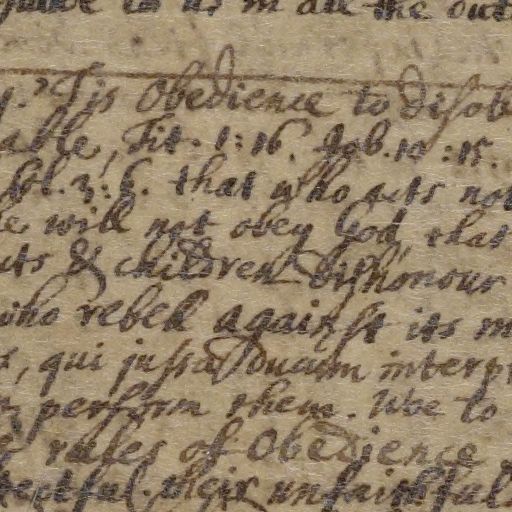 to us in all the out
y. Tis Obedience to disob
able, Tit. 1:16. Job. 10:15.
Col. 3:6. that who acts not
he will not obey God, that
cts & children dishonour
who rebell against its m
s, qui jussa Ducum interpr
perform them. Woe to
rules of Obedience
tectful. their unfaithful